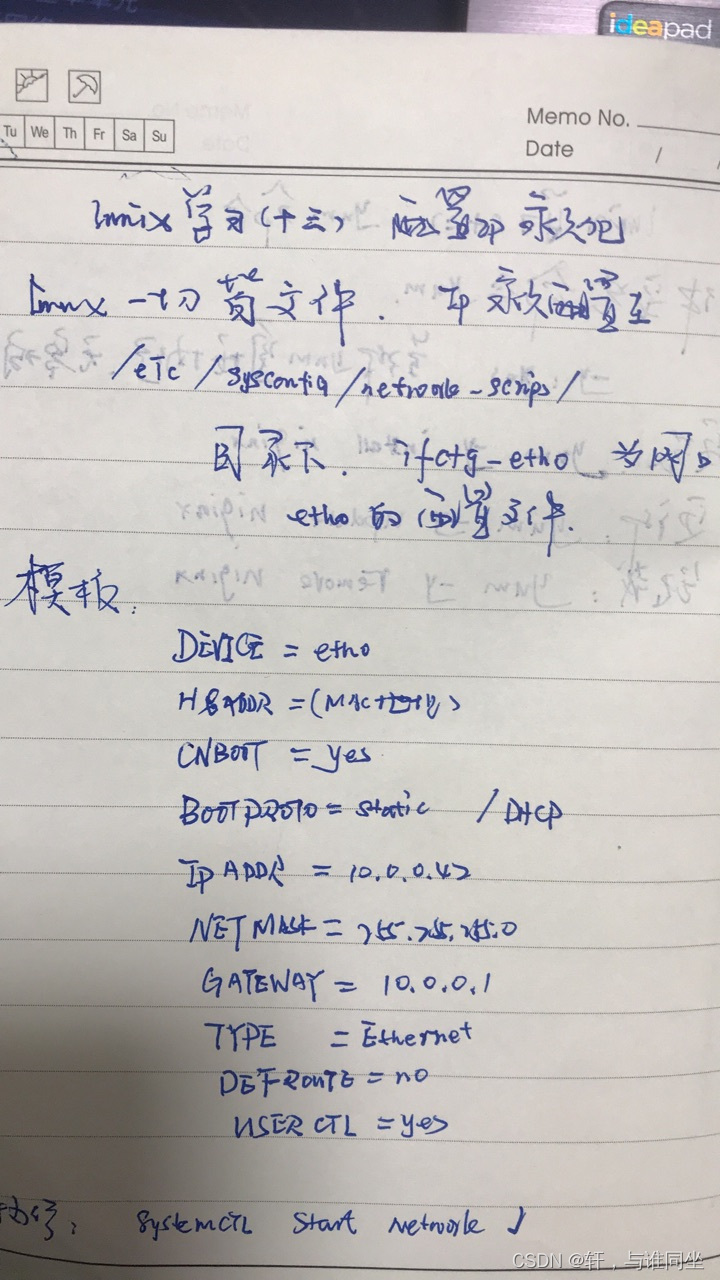 ideapad
Memo No.
Tu We Th Fr Sa Su
Date / /
linnix 学习(十三) 配置IP 永久地
Linnx 一切皆文件. IP 永久配置在
/etc/sysconfig/netwrok-scrips/
目录下. ifcfg-eth0 为网口
eth0 的配置文件.
模板:
DEVICE = eth0
HWADDR =(MAC地址)
ONBOOT = yes
BOOTPROTO = static / DHCP
IPADDR = 10.0.0.42
NETMASK = 255.255.255.0
GATEWAY = 10.0.0.1
TYPE = Ethernet
DEFROUTE = no
USERCTL = yes
systemCTL start netwrok
CSDN @轩，与谁同坐